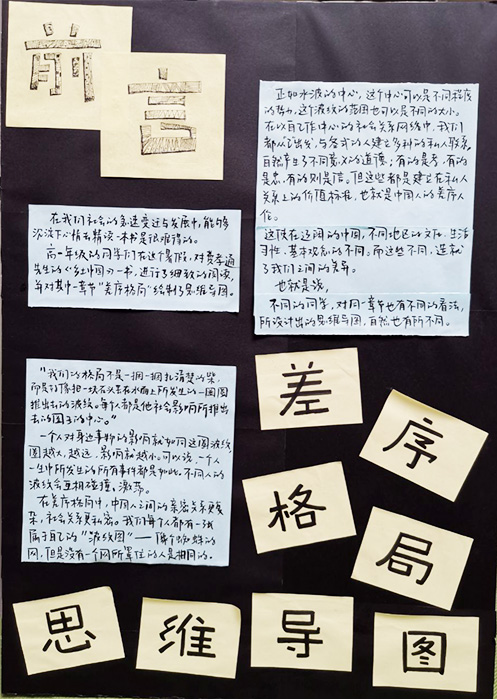 前
言
在我们社会的高速变迁与发展中,能够
沉下心情去精读一本书是很难得的。
高一年级的同学们在这个暑假,对费孝通
先生的《乡土中国》一书,进行了细致的阅读,
并对其中一章节"差序格局"绘制了思维导图。
"我们的格局不是一捆一捆扎清楚的柴,
而是好像把一块石头丢在水面上所发生的一圈圈
推出去的波纹。每个人都是他社会影响所推出
去的圈子的中心。"
一个人对身边事物的影响就如同这圈波纹,
圈越大,越远,影响就越小。可以说,一个人
一生中所发生的所有事件都是如此。不同人的
波纹会互相碰撞、激荡。
在差序格局中,中国人之间的亲密关系更复
杂,社会关系更私密。我们每个人都有一张
属于自己的"波纹图"——像个蜘蛛的
网,但是没有一个网所罩住的人是相同的。
正如水波的中心,这个中心可以是不同程度
的势力,这个波纹的范围也可以是不同的大小。
在以自己作中心的社会关系网络中,我们
都从己出发,与各式的人建立多种的私人联系,
自然产生了不同意义的道德:有的是孝,有的
是忠,有的则是信。但这些都是建立在私人
关系上的价值标准,也就是中国人的差序人
伦。
这使在辽阔的中国,不同地区的文化、生活
习性,基本观念的不同。而这些不同,造就
了我们之间的差异。
也就是说,
不同的同学,对同一章节也有不同的看法,
所设计出的思维导图,自然也有所不同。
差
序
格
局
思
维
导
图